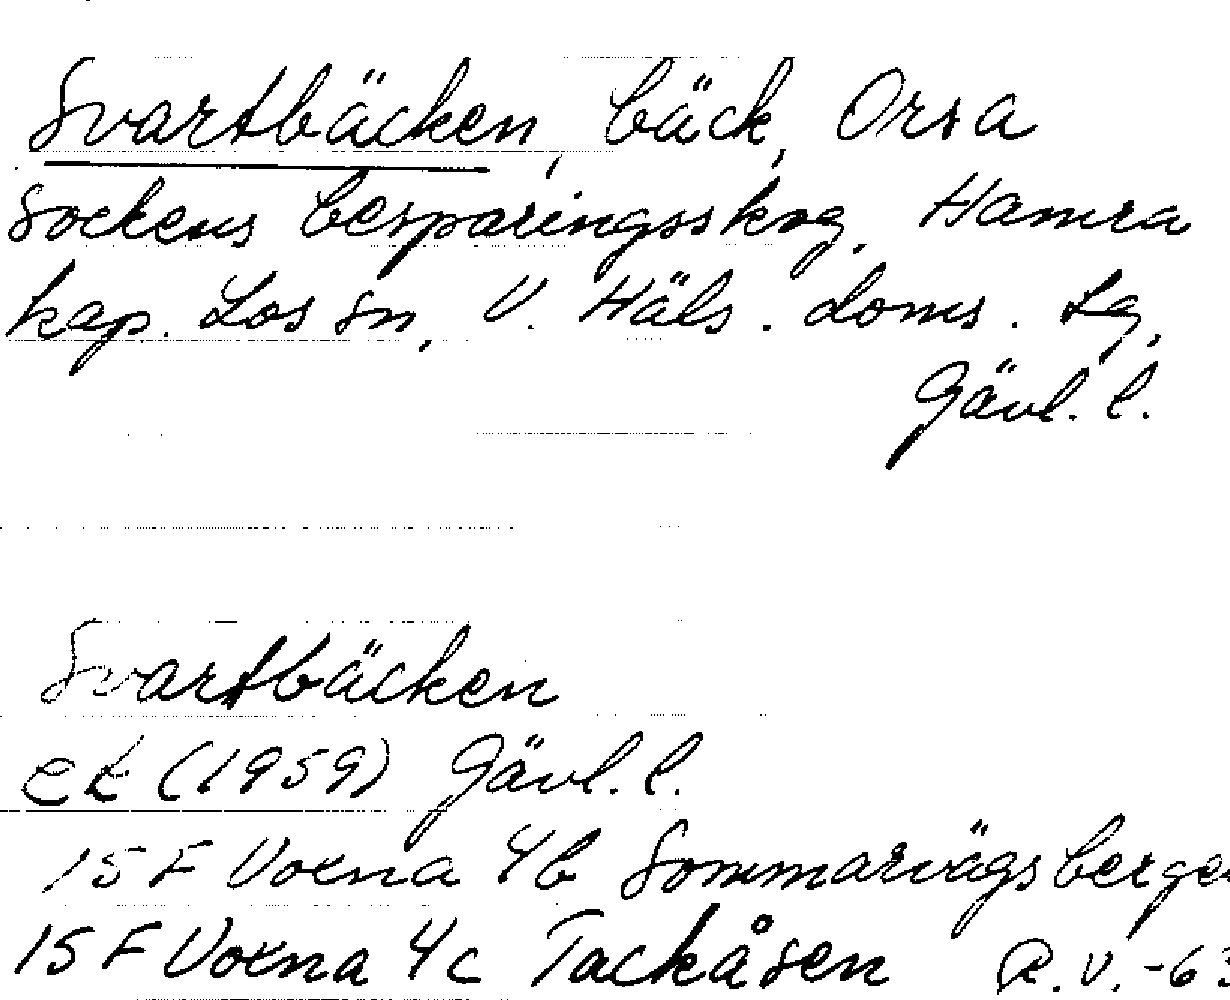 Svartbäcken, bäck, Orsa
Sockens besparingsskog, Hamra
kap. Los sn, V. Häls. doms. tg,
Gävl. l.
Svartbäcken
ek (1959) Gävl. l.
15 F Voxna 4b Sommarvägsberge
15 F Voxna 4c Tackåsen R.V. -63